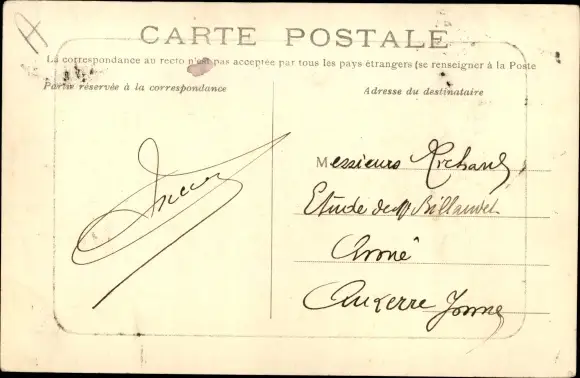 A
CARTE POSTALE
La correspondance au recto n'est pas acceptée par tous les pays étrangers (se renseigner à la Poste
Partie réservée à la correspondance
Adresse du destinataire
Messieurs
Etude de Me Billauvet
Avoué
Auxerre Yonne